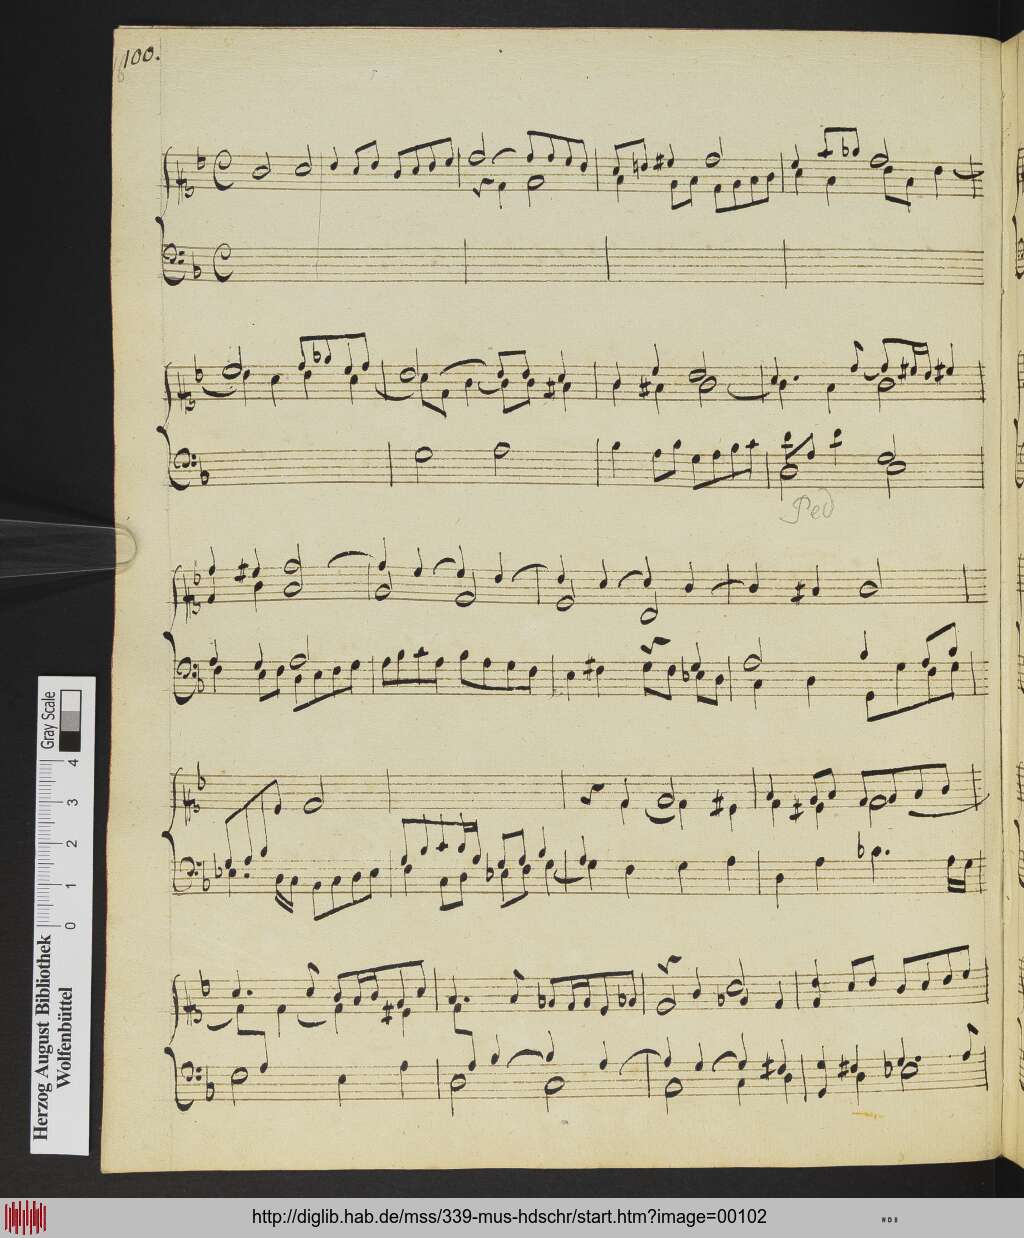 100.
Ped
Gray Scale
0 1 2 3 4
Herzog August Bibliothek
Wolfenbüttel
http://diglib.hab.de/mss/339-mus-hdschr/start.htm?image=00102